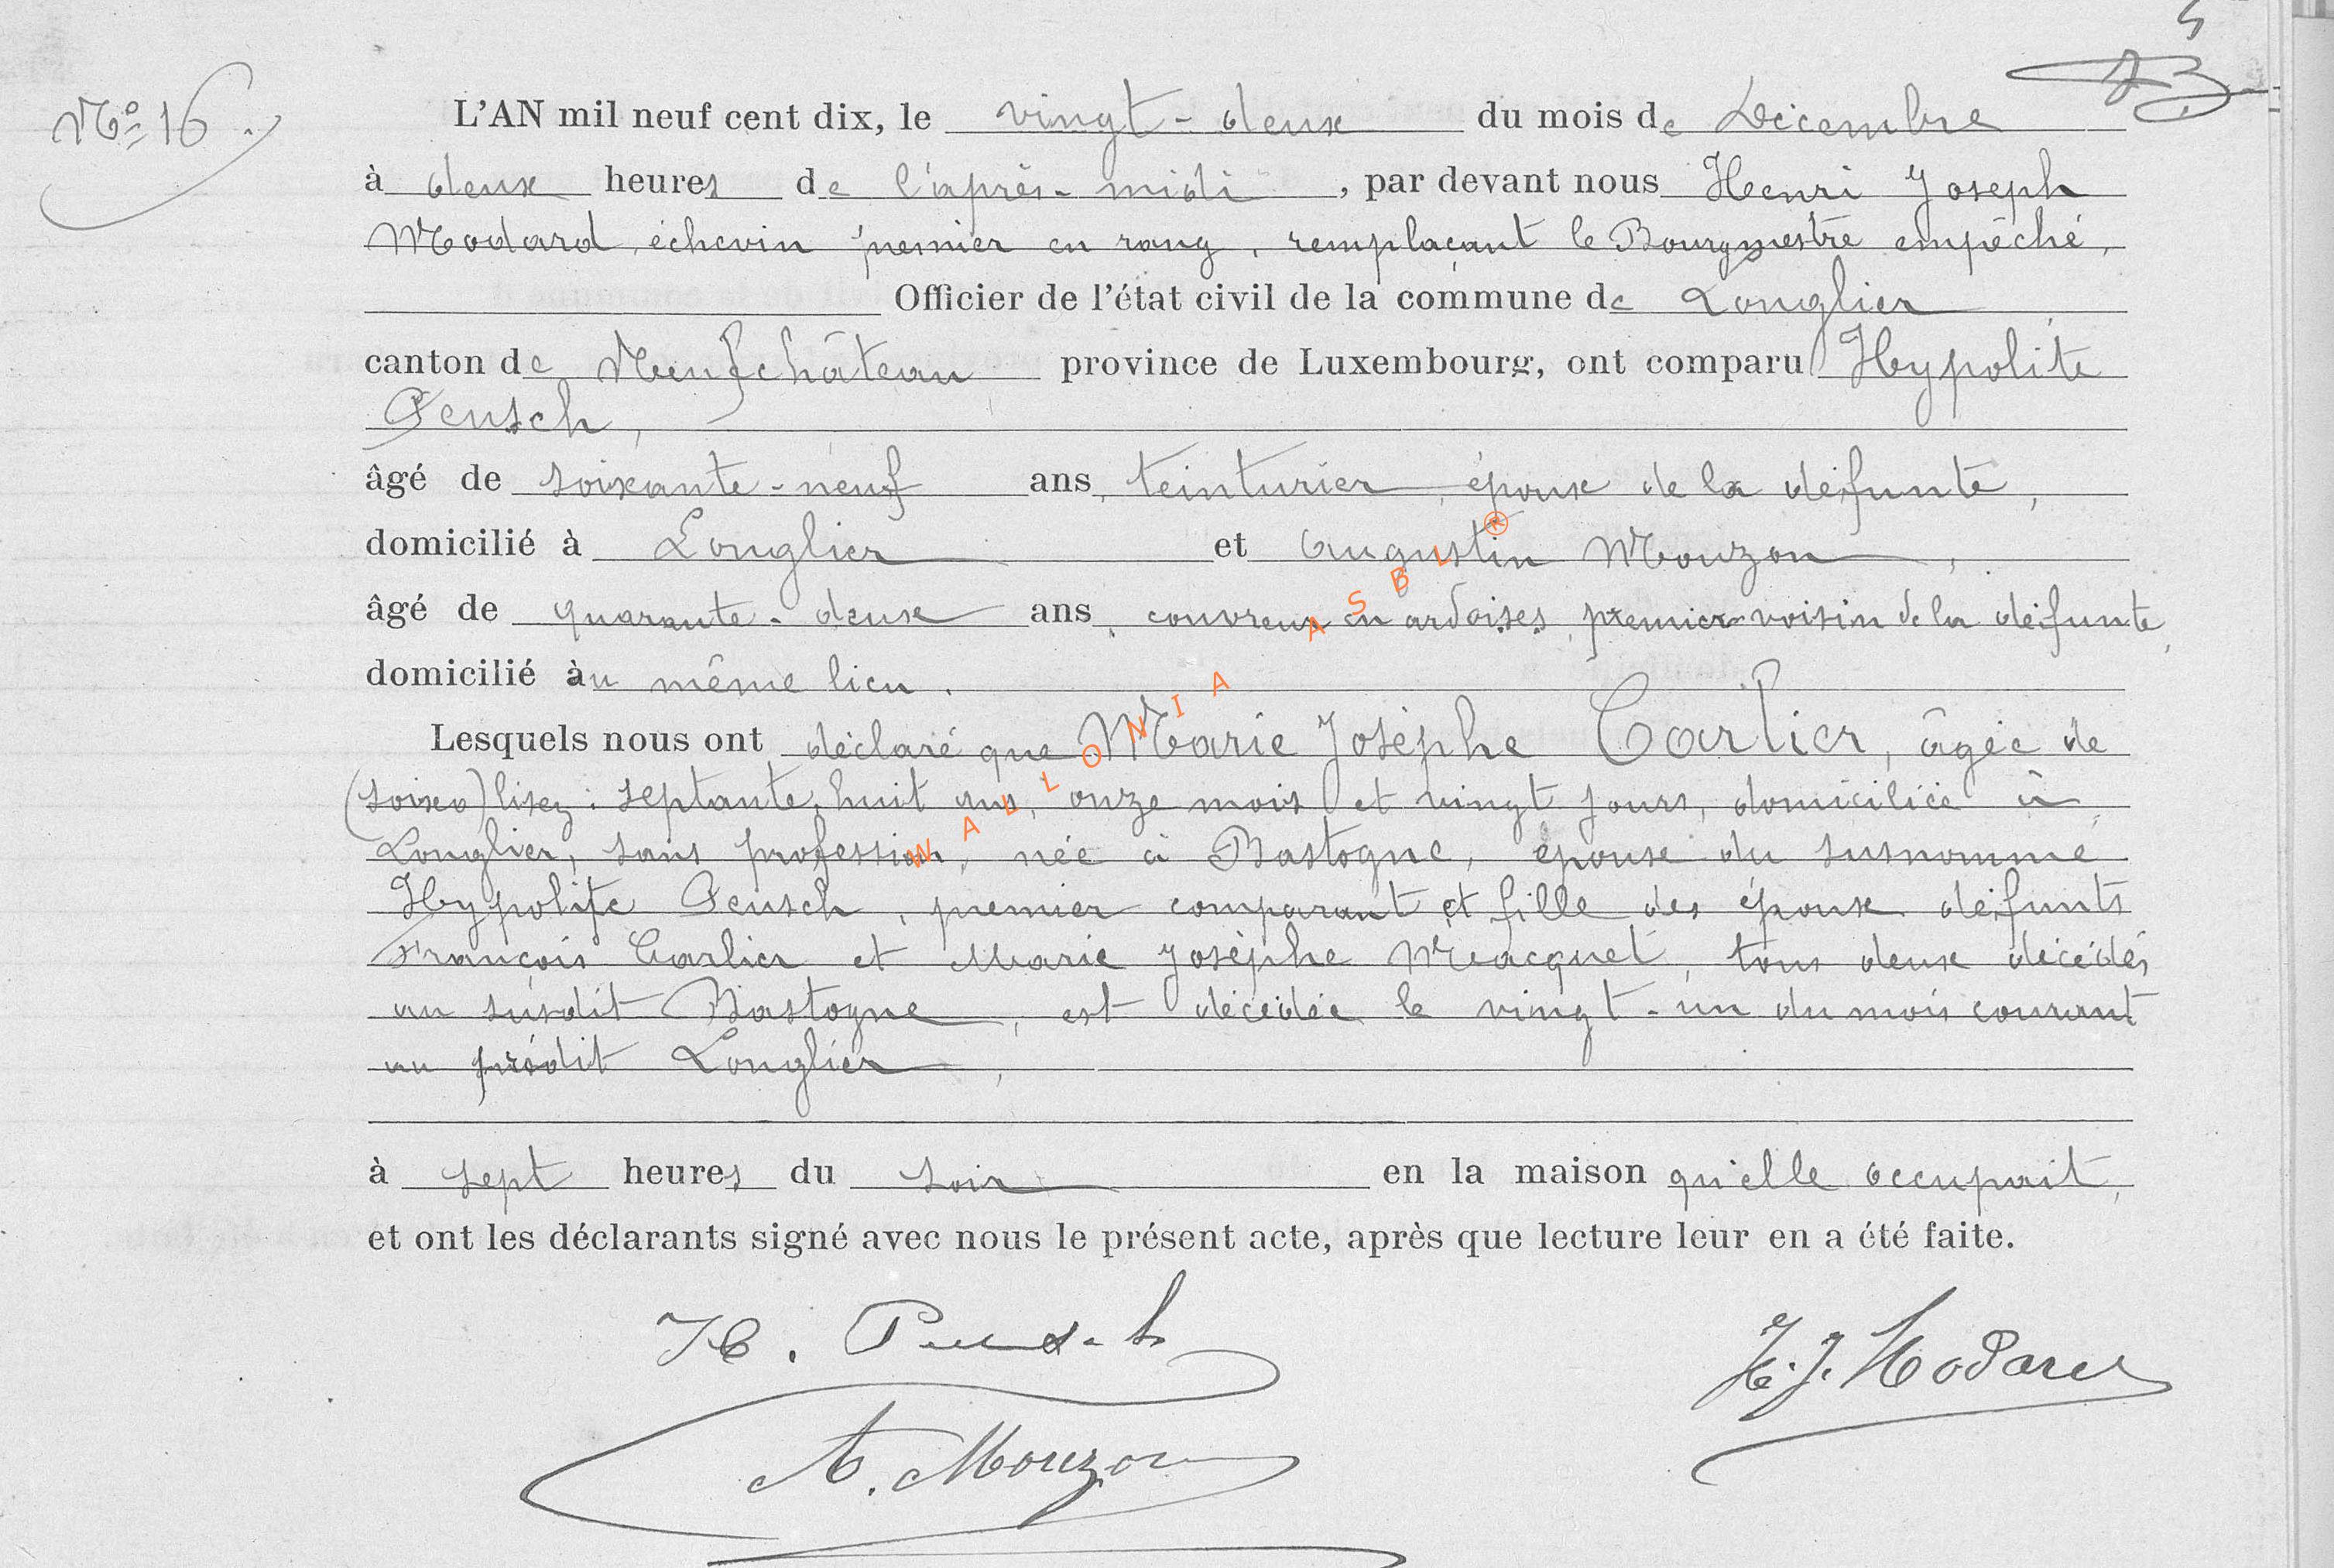 5
N° 16.
L'AN mil neuf cent dix, le vingt-deux du mois de Décembre
à deux heures de l'après-midi, par devant nous Henri Joseph
Modard, échevin premier en rang, remplaçant le Bourgmestre empêché,
Officier de l'état civil de la commune de Longlier,
canton de Neufchâteau province de Luxembourg, ont comparu Hypolite
Peusch,
âgé de soixante-neuf ans, teinturier, époux de la défunte,
domicilié à Longlier et Augustin Mouzon,
âgé de quarante-deux ans, couvreur en ardoises, premier voisin de la défunte,
domicilié au même lieu.
Lesquels nous ont déclaré que Marie Josèphe Carlier, âgée de
(soixa) lisez: septante-huit ans, onze mois et vingt jours, domiciliée à
Longlier, sans profession, née à Bastogne, épouse du susnommé
Hypolite Peusch, premier comparant et fille des époux défunts
François Carlier et Marie Josèphe Macquet, tous deux décédés
au susdit Bastogne, est décédée le vingt-un du mois courant
au prédit Longlier,
à sept heures du soir en la maison qu'elle occupait,
et ont les déclarants signé avec nous le présent acte, après que lecture leur en a été faite.
H. Peusch
H. J. Modard
A. Mouzon
WALLONIA ASBL ®